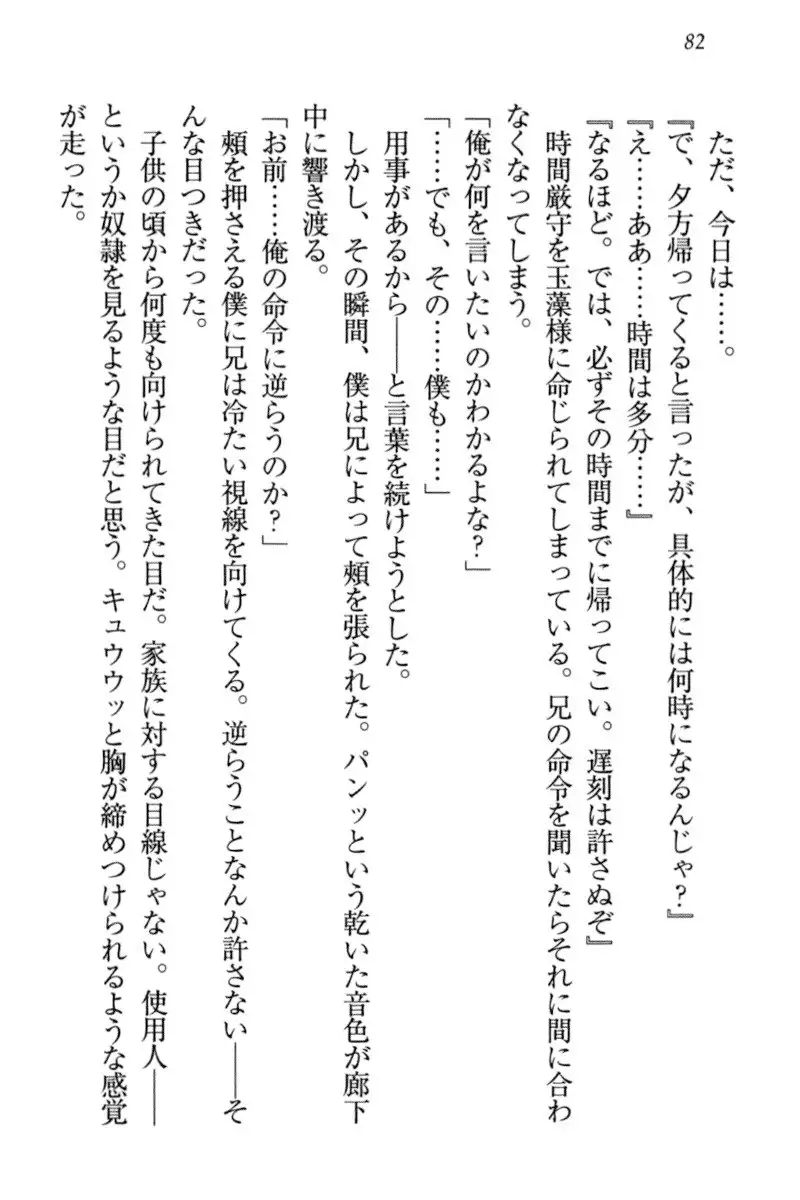 82
ただ、今日は……。
『で、夕方帰ってくると言ったが、具体的には何時になるんじゃ？』
『え……ああ……時間は多分……』
『なるほど。では、必ずその時間までに帰ってこい。遅刻は許さぬぞ』
時間厳守を玉藻様に命じられてしまっている。兄の命令を聞いたらそれに間に合わ
なくなってしまう。
「俺が何を言いたいのかわかるよな？」
「……でも、その……僕も……」
用事があるから――と言葉を続けようとした。
しかし、その瞬間、僕は兄によって頬を張られた。パンッという乾いた音色が廊下
中に響き渡る。
「お前……俺の命令に逆らうのか？」
頬を押さえる僕に兄は冷たい視線を向けてくる。逆らうことなんか許さない――そ
んな目つきだった。
子供の頃から何度も向けられてきた目だ。家族に対する目線じゃない。使用人――
というか奴隷を見るような目だと思う。キュウウッと胸が締めつけられるような感覚
が走った。